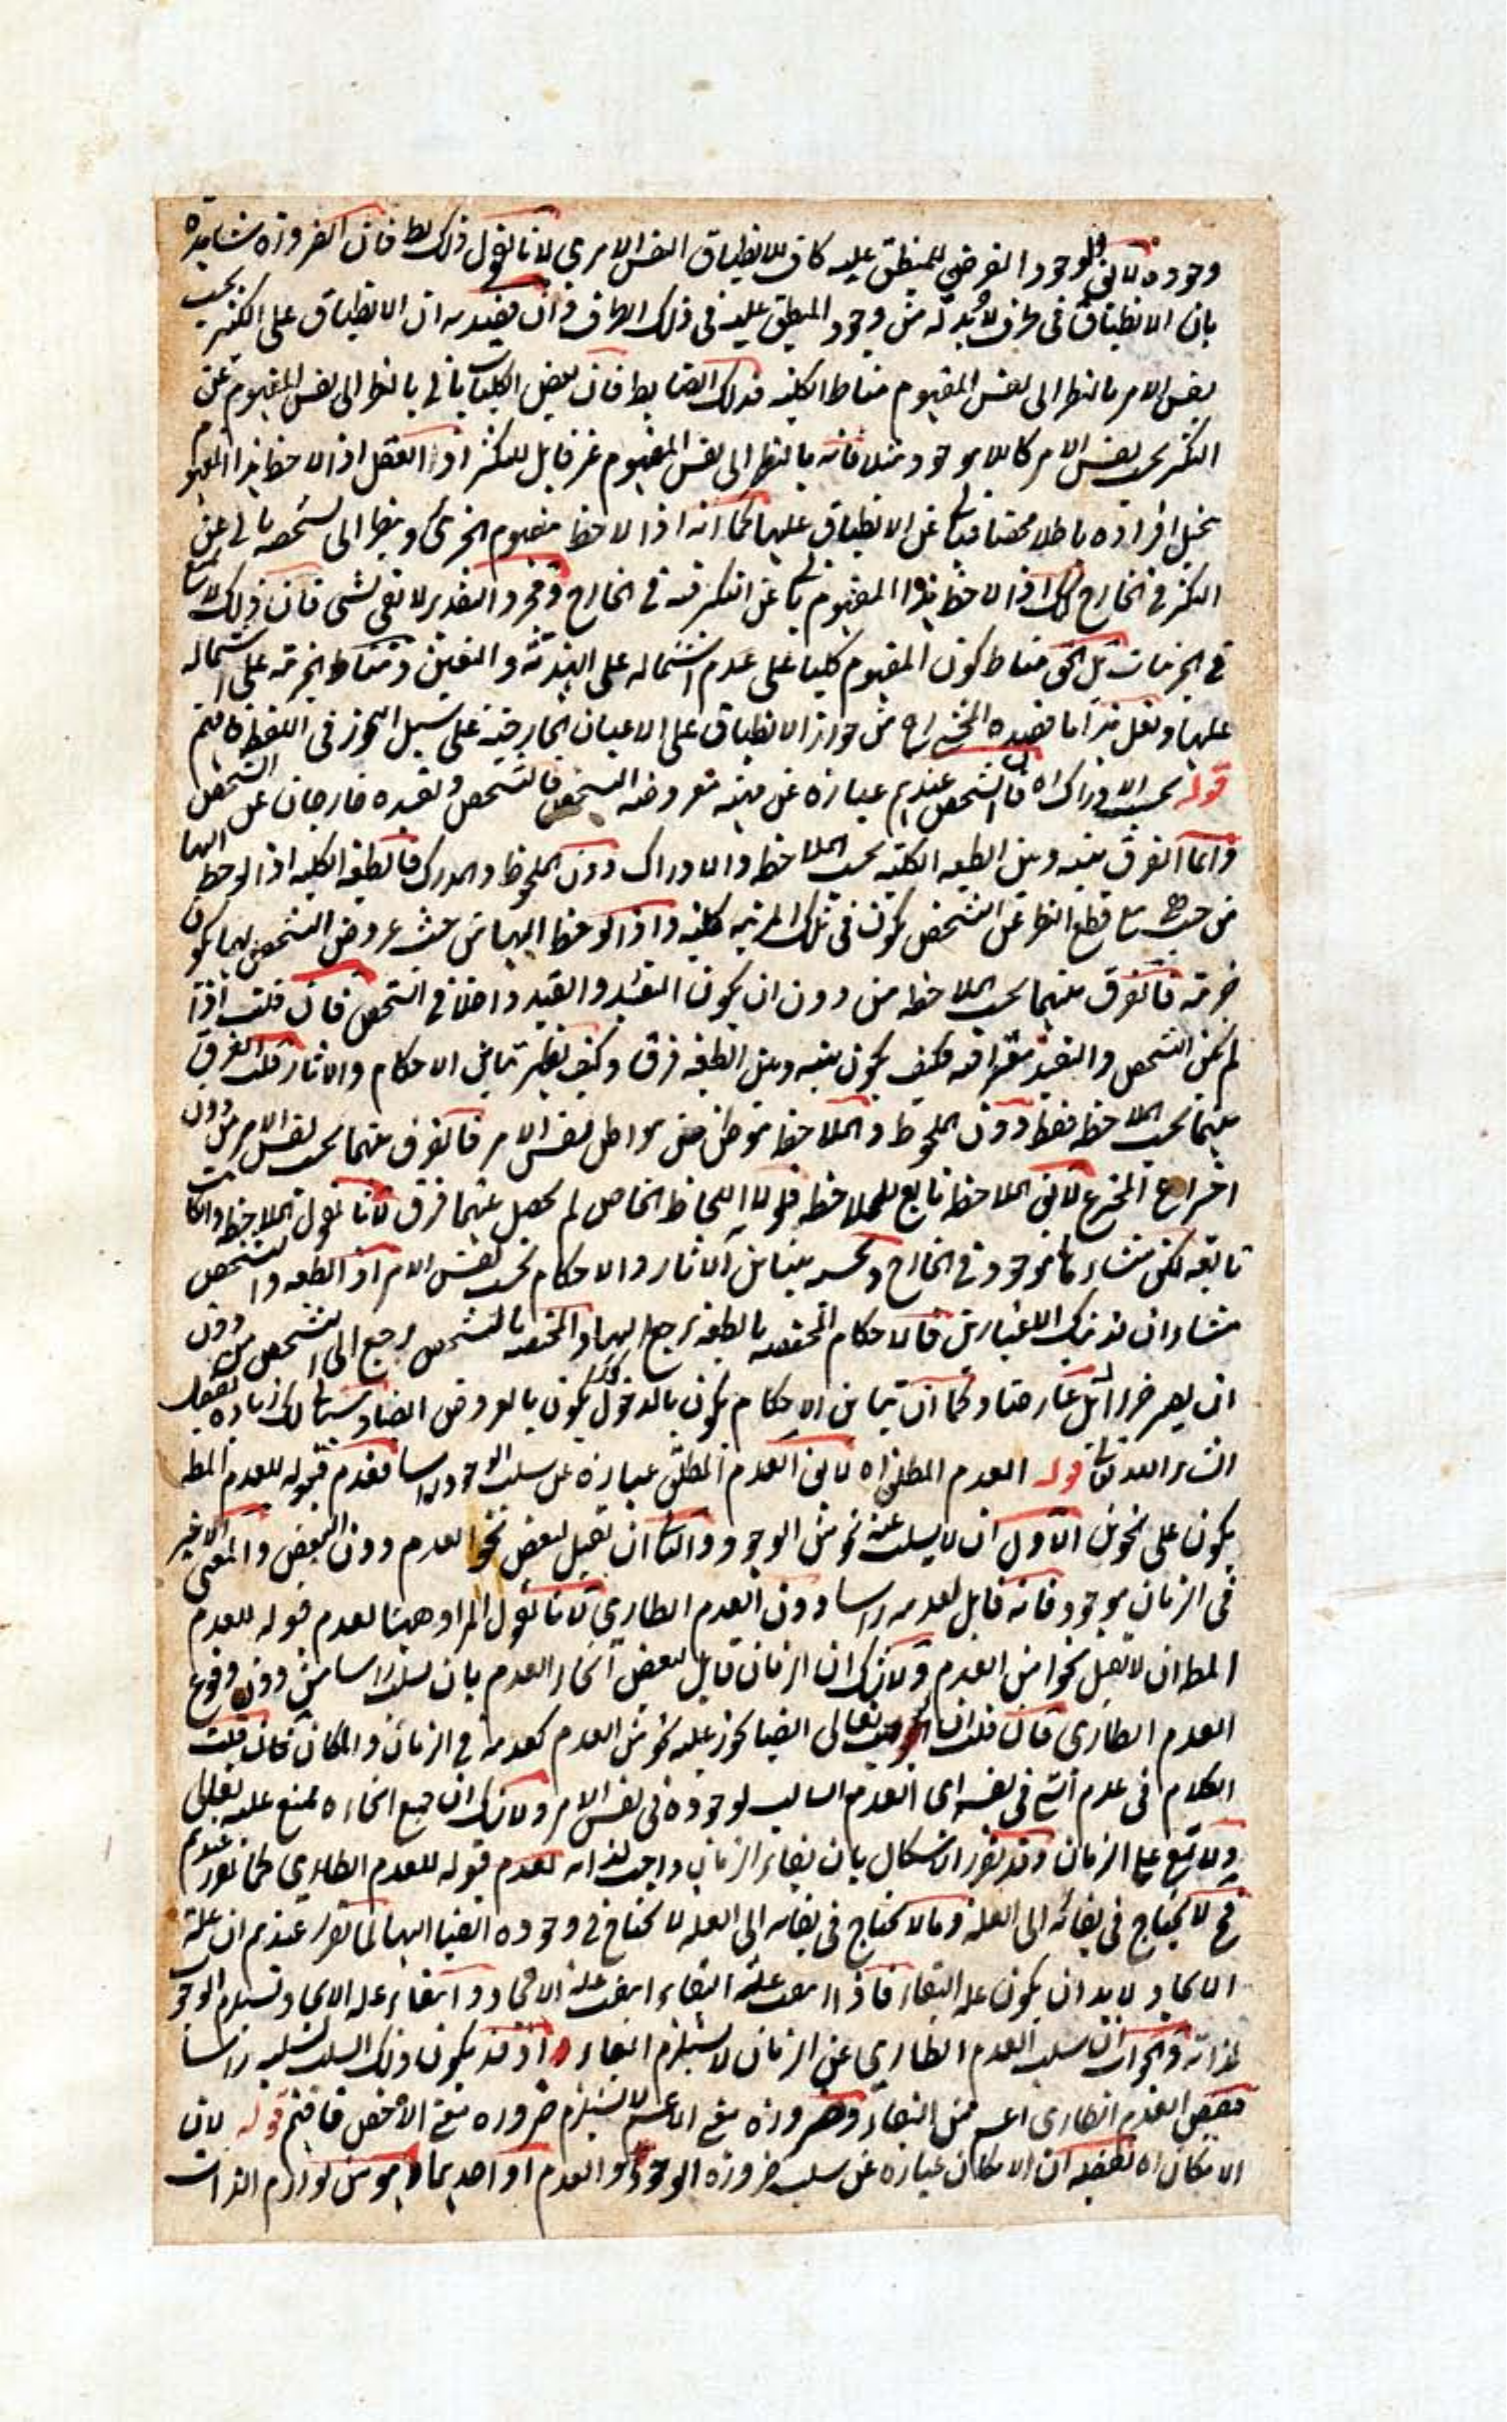 وجوده لا يقال الوجود الفرضي للمنطبق عليه كاف للانطباق النفس الامري لانا نقول ذلك بط فان الضرورة شاهدة
بان الانطباق في ظرف لا بد له من وجود المنطبق عليه في ذلك الظرف وان قيد به ان الانطباق على الكثير بحسب
نفس الامر بالنظر الى نفس المفهوم مناط الكلية فذلك فان بعض الكليات يابى بالنظر الى نفس المفهوم عن
التكثر بحسب نفس الامر كاللاموجود مثلا فانه بالنظر الى نفس المفهوم غير قابل للتكثر اذ العقل اذا لاحظ هذا المفهوم
يخيل افراده باطلا محضا فيابى عن الانطباق عليها كما انه اذا لاحظ مفهوم الجزئي وينظر الى تشخصه يابى عن
التكثر في الخارج كذلك اذا لاحظ هذا المفهوم يابى عن التكثر فيه في الخارج ومجرد التقدير لا يغني لشي فان ذلك
في الجزئيات بل الحق مناط كون المفهوم كليا على عدم اشتماله على الهذية والتعين ومناط الجزئية على اشتماله
عليها ولعل هذا ما قصده المخترع من جواز الانطباق على الاعيان الخارجية على سبيل التجوز في اللفظ فافهم
قوله بحسب الادراك اه فالشخص عندهم عبارة عن مهية معروضة التشخص فالتشخص وتقيده خارجان عن الشخص
وانما الفرق بينه وبين الطبيعة الكلية بحسب الملاحظة والادراك دون الملحوظ والمدرك فالطبيعة الكلية اذا لوحظ اليها
من حيث هي مع قطع النظر عن التشخص تكون في تلك المرتبة كلية واذا لوحظ اليها من حيث عروض التشخص لها تكون
جزئية فالفرق بينهما بحسب الملاحظة من دون ان يكون التقيد والقيد داخلا في الشخص فان قلت اذا
لم يكن التشخص والتقيد معتبرا فيه فكيف يكون بينه وبين الطبيعة فرق وكيف يظهر تباين الاحكام والاثار قلت الفرق
بينهما بحسب الملاحظة فقط دون الملحوظ والملاحظة موطن من مواطن نفس الامر فالفرق بينهما بحسب نفس الامر من دون
اختراع المخترع لا يقال الملاحظة تابع للملاحظ فلولا اللحاظ الخاص لم يحصل بينهما فرق لانا نقول الملاحظة وان كانت
تابعة لكن منشاءها موجود في الخارج وبحسبه تباين الاثار والاحكام بحسب نفس الامر اذ الطبيعة والشخص
منشاءان لذينك الاعتبارين فالاحكام المختصة بالطبيعة ترجع اليها والمختصة بالتشخص ترجع الى الشخص من دون
ان يصير جزءا بل عارضا وكما ان تباين الاحكام يكون بالدخول كذلك يكون بالعروض ايضا وسياتي لك زيادة تفصيل
انشاء الله تعالى قوله العدم المطلق اه لا يقال العدم المطلق عبارة عن سلب الوجود راسا فعدم قبوله للعدم المطلق
يكون على نحوين الاول ان لا يسلب عنه نحو من الوجود والثاني ان يقبل لبعض نحو العدم دون البعض والمعنى الاخير
في الزمان موجود فانه قابل لعدمه راسا دون العدم الطاري لانا نقول المراد ههنا لعدم قبوله للعدم
المطلق ان لا يقبل نحوا من العدم ولا شك ان الزمان قابل لبعض انحاء العدم بان يسلب راسا من دون وقوع
العدم الطاري فان قلت ان الواجب تعالى ايضا يجوز عليه نحو من العدم كعدمه في الزمان والمكان فان قلت
الكلام في عدم الشي في نفسه اي العدم السالب لوجوده في نفس الامر ولا شك ان جميع انحاءه ممتنع عليه تعالى
ولا تمتنع على الزمان وقد تقرر الاشكال بان بقاء الزمان واجب لذاته لعدم قبوله للعدم الطاري كما تقرر عندهم
فح لا يحتاج في بقائه الى العلة وما لا يحتاج في بقائه الى العلة لا يحتاج في وجوده ايضا اليها لما تقرر عندهم ان علة
الايجاد لا بد ان يكون علة البقاء فاذا انتفت علة البقاء انتفت علة الايجاد وانتفاء علة الايجاد تستلزم الوجوب
لذاته والجواب ان سلب العدم الطاري عن الزمان لا يستلزم البقاء اذ قد يكون ذلك السلب بسلبه راسا
فنقيض العدم الطاري اعم من البقاء وضرورة نفي الاعم لا يستلزم ضرورة نفي الاخص فافهم قوله لان
الامكان اه تفصيله ان الامكان عبارة عن سلب ضرورة الوجود والعدم او احدهما وهو من لوازم الذات